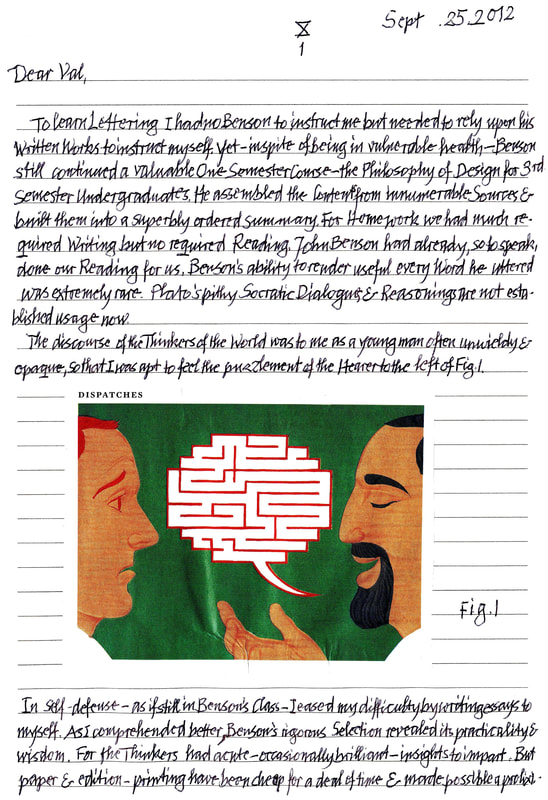 Sept. 25.2012
X
1
Dear Val,
To learn Lettering I had no Benson to instruct me but needed to rely upon his
Written Works to instruct myself. Yet-inspite of being in vulnerable health-Benson
still continued a valuable One-Semester Course-the Philosophy of Design for 3rd
Semester Undergraduates. He assembled the Content from innumerable Sources &
built them into a superbly ordered summary. For Homework we had much re-
quired Writing but no required Reading. John Benson had already, so to speak,
done our Reading for us. Benson's ability to render useful every Word he uttered
was extremely rare. Plato's pithy Socratic Dialogue & Reasonings are not esta-
blished usage now.
The discourse of the Thinkers of the World was to me as a young man often unwieldy &
opaque, so that I was apt to feel the puzzlement of the Hearer to the left of Fig.1.
DISPATCHES
Fig.1
In self-defense-as if still in Benson's Class-I eased my difficulty by writing essays to
myself. As I comprehended better, Benson's rigorous Selection revealed its practicality &
wisdom. For the Thinkers had acute-occasionally brilliant-insights to impart. But
paper & edition-printing have been cheap for a deal of time & made possible a prolixi-